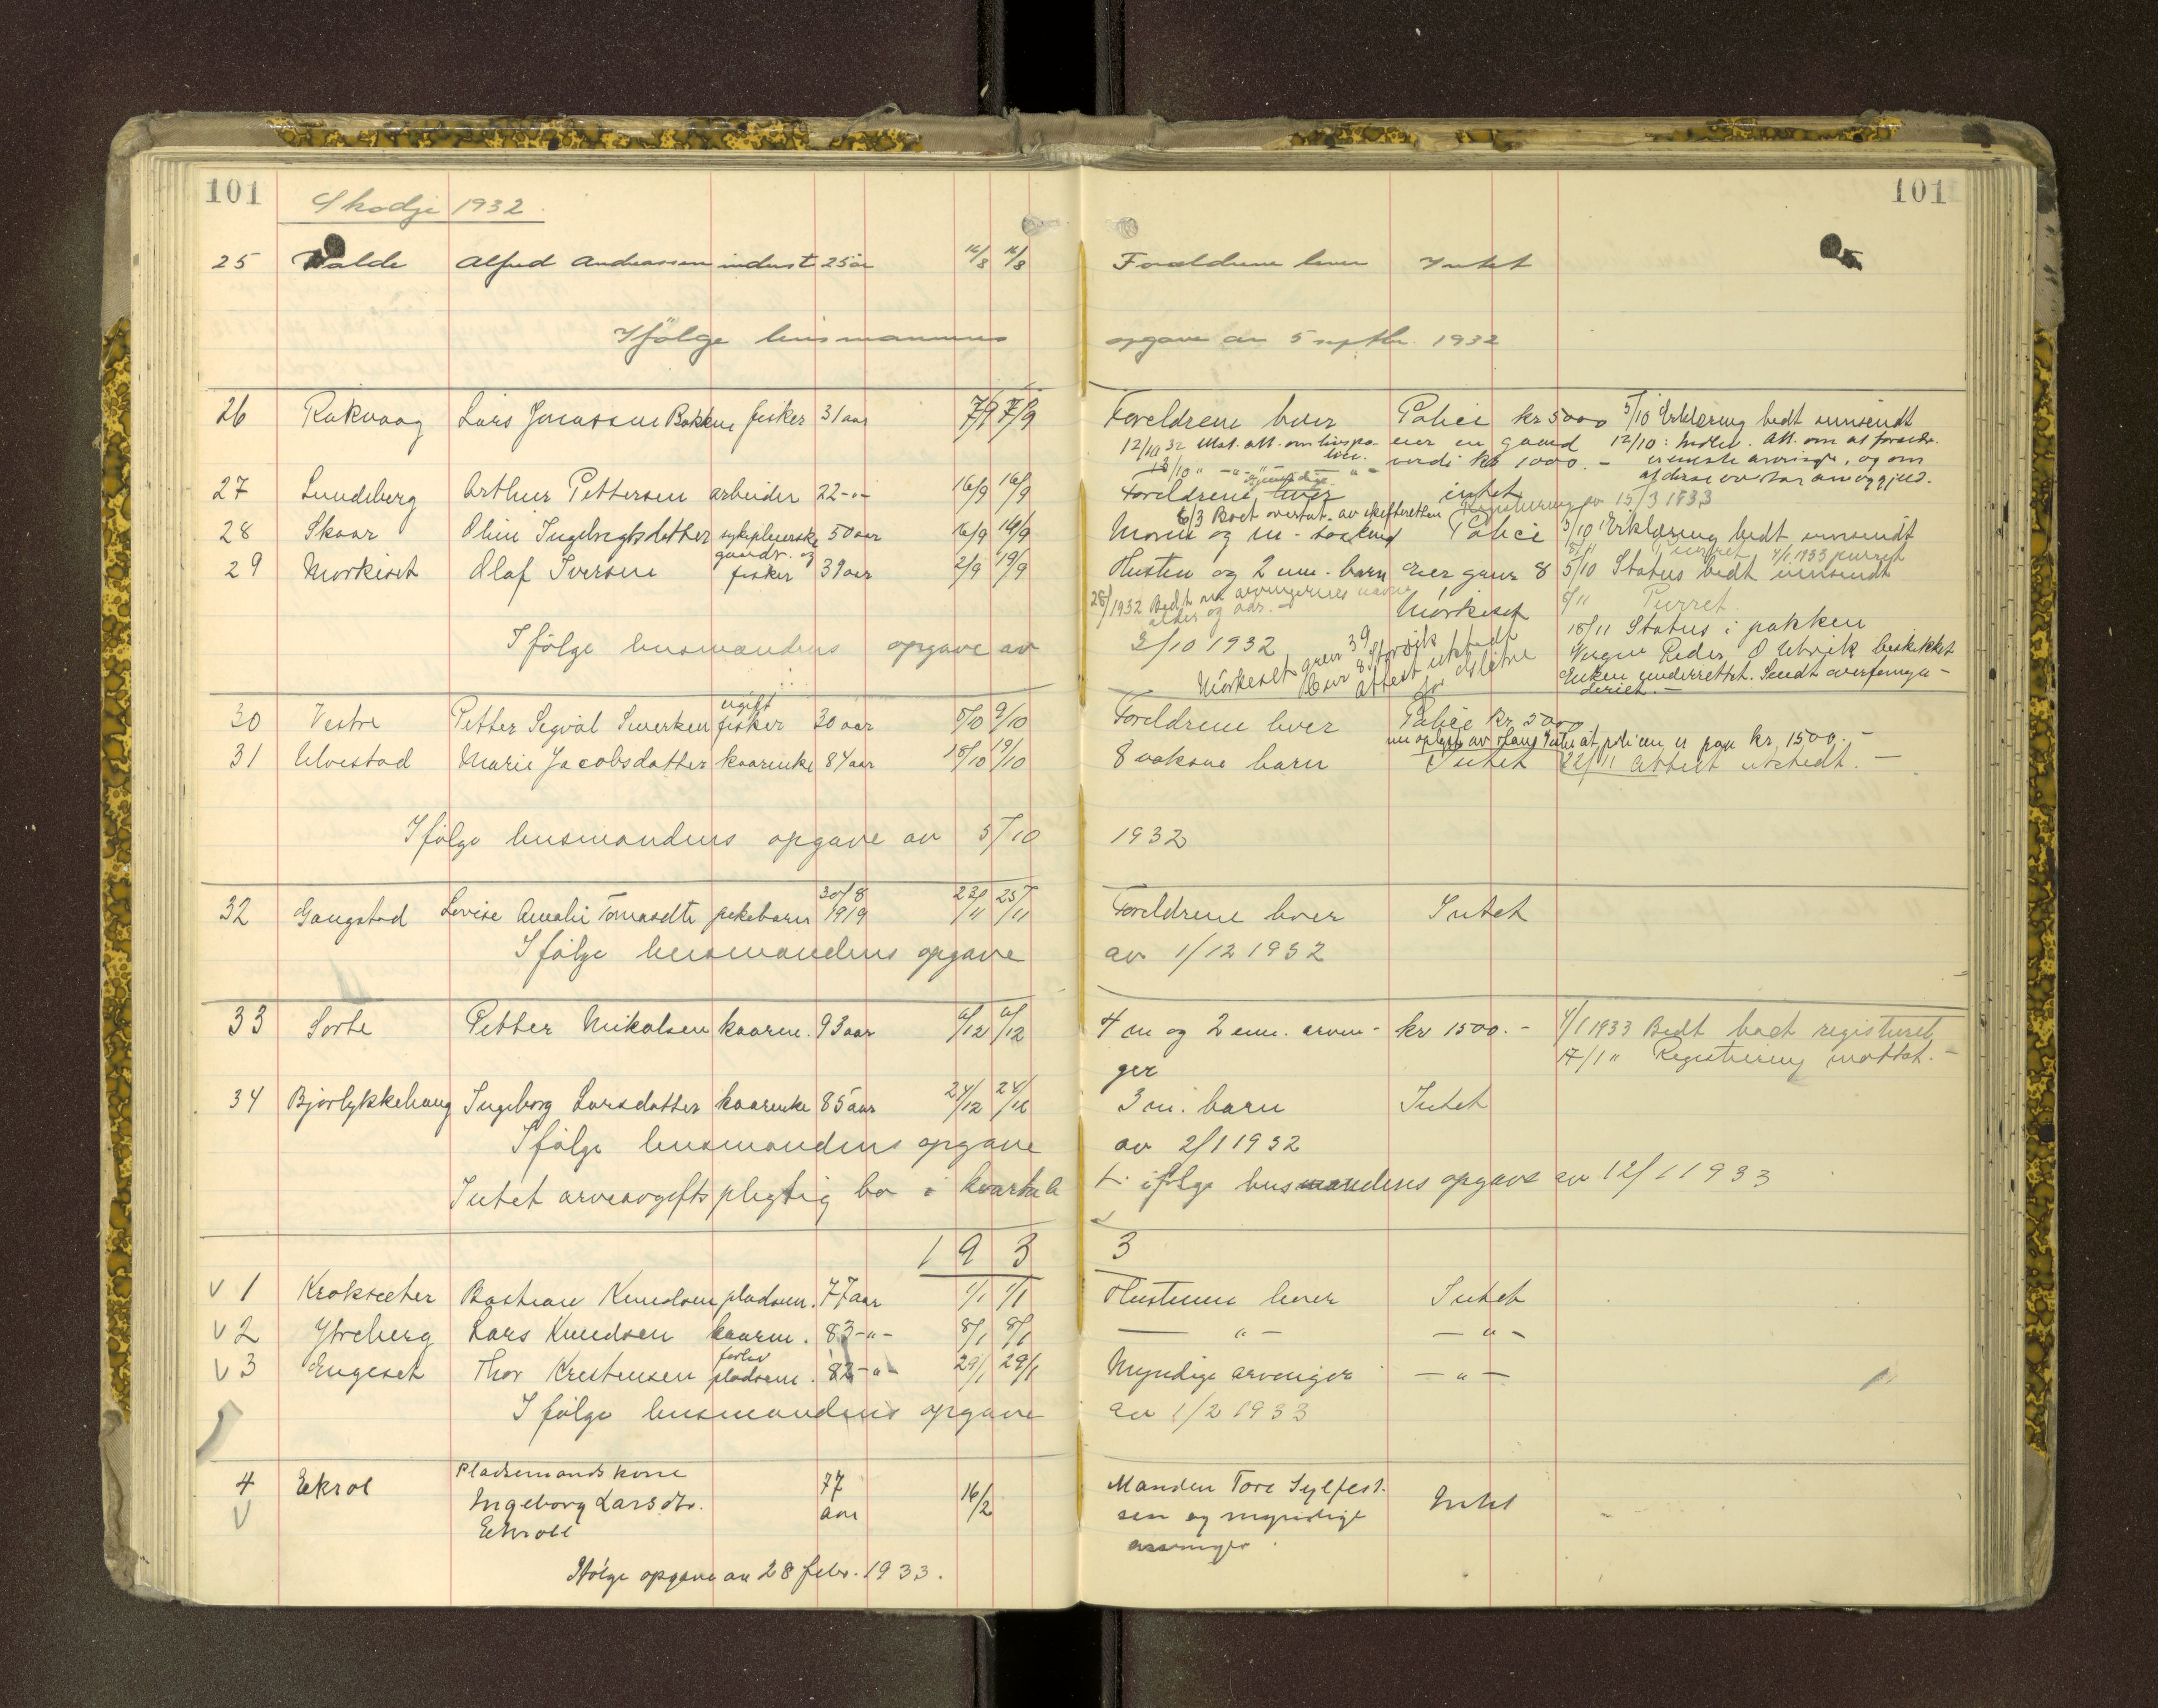 101
101
Skodje 1932
25 Valde Alfred Andreassen indust 25 år 16/8 16/8 Foreldrene lever Intet
Ifölge lensmannens opgave av 5 septbr. 1932
26 Rakvaag Lars Jonassen Bakken fisker 31 aar 7/9 7/9 Foreldrene lever Police kr 5000 5/10 Erklæring bedt innsendt
12/10 32 Mot. att. om livspo- eier en gaard 12/10: Att. om at foreldr.
lise. verdi kr 1000.- eneste arvinger, og om
27 Lundeberg Arthur Pettersen arbeider 22 -"- 16/9 16/9 Foreldrene lever intet
myndige
6/3 Boet overtat av skifteretten Registrering av 15/3 1933
28 Skaar Oline Ingebregtsdatter sykepleierske 50 aar 16/9 16/9 Moren og m- søskend Police 5/10 Erklæring bedt innsendt
Purret 4/1 1933 purret
29 Mörkeset Olaf Iversen gaardbr. og fisker 39 aar 2/9 19/9 Hustru og 2 um. barn Eier gaar 8 5/10 Status bedt innsendt
28/ 1932 Bedt om arvingernes navne
alder og adr. Mörkeset 5/11 Purret
Ifölge lensmandens opgave av 3/10 1932 18/11 Status i pakken
Mörkeset gnr 39 bnr 8 Storvik
attest utstedt
Verge Peder O Utvik beskikket
Enken underrettet. Sendt overformyn-
deriet.-
30 Vestre Petter Segvål Sneerken ugift fisker 30 aar 5/10 9/10 Foreldrene lever Police kr 5000
nu oplyst av at policen er paa kr. 1500.-
31 Ulvestad Marie Jacobsdatter kaarenke 84 aar 18/10 19/10 8 voksne barn Intet 22/11 attest utstedt.-
Ifölge lensmandens opgave av 5/10 1932
32 Gangstad Lovise Amalie Tomasdtr pikebarn 30/8 1919 23/11 25/11 Foreldrene lever Intet
Ifölge lensmandens opgave av 1/12 1932
33 Sorte Petter Nikolsen kaarm. 93 aar 6/12 6/12 4 m og 2 um. arvin- kr 1500.- 4/1 1933 Bedt boet registreret
ger 17/1 " Registrering mottat.-
34 Bjørlykkehaug Ingeborg Larsdatter kaarenke 85 aar 24/12 24/12 3 m. barn Intet
Ifölge lensmandens opgave av 2/1 1932
Intet arveavgiftspligtig bo i kvartale t. ifölge lensmandens opgave av 12/1 1933
1933
V 1 Kroksæter Bastian Knudsen pladsm. 77 aar 1/1 1/1 Hustruen lever Intet
V 2 Ytreberg Lars Knudsen kaarm. 83 -"- 8/1 8/1 — " — — " —
V 3 Engeset Thor Kristensen forhv pladsm. 82 -"- 29/1 29/1 Myndige arvinger — " —
Ifölge lensmandens opgave av 1/2 1933
4 Ekrol Pladsemandskone 77 aar 16/2 Manden Tore Sylfest- Intet
V Ingeborg Larsdtr. sen og myndige
Ekroll arvinger.
Ifölge opgave av 28 febr. 1933.